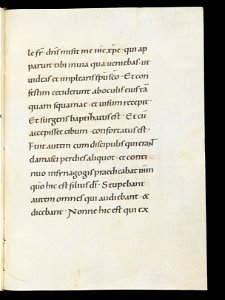 le fr̄. dn̄s misit me ih̄s xp̄c · qui ap
paruit tibi in uia qua ueniebas · ut
uideas et implearis sp̄u sc̄o · Et con
festim ceciderunt ab oculis eius tā
quam squamae · et uisum recepit ·
Et surgens baptizatus est · Et cū
accepisset cibum · confortatus est ·
Fuit autem cum discipulis qui erant
damasci per dies aliquot · et conti
nuo in synagogis praedicabat ih̄m
quo hic est filius dī · Stupebant
autem omnes qui audiebant · &
dicebant · Nonne hic est qui ex